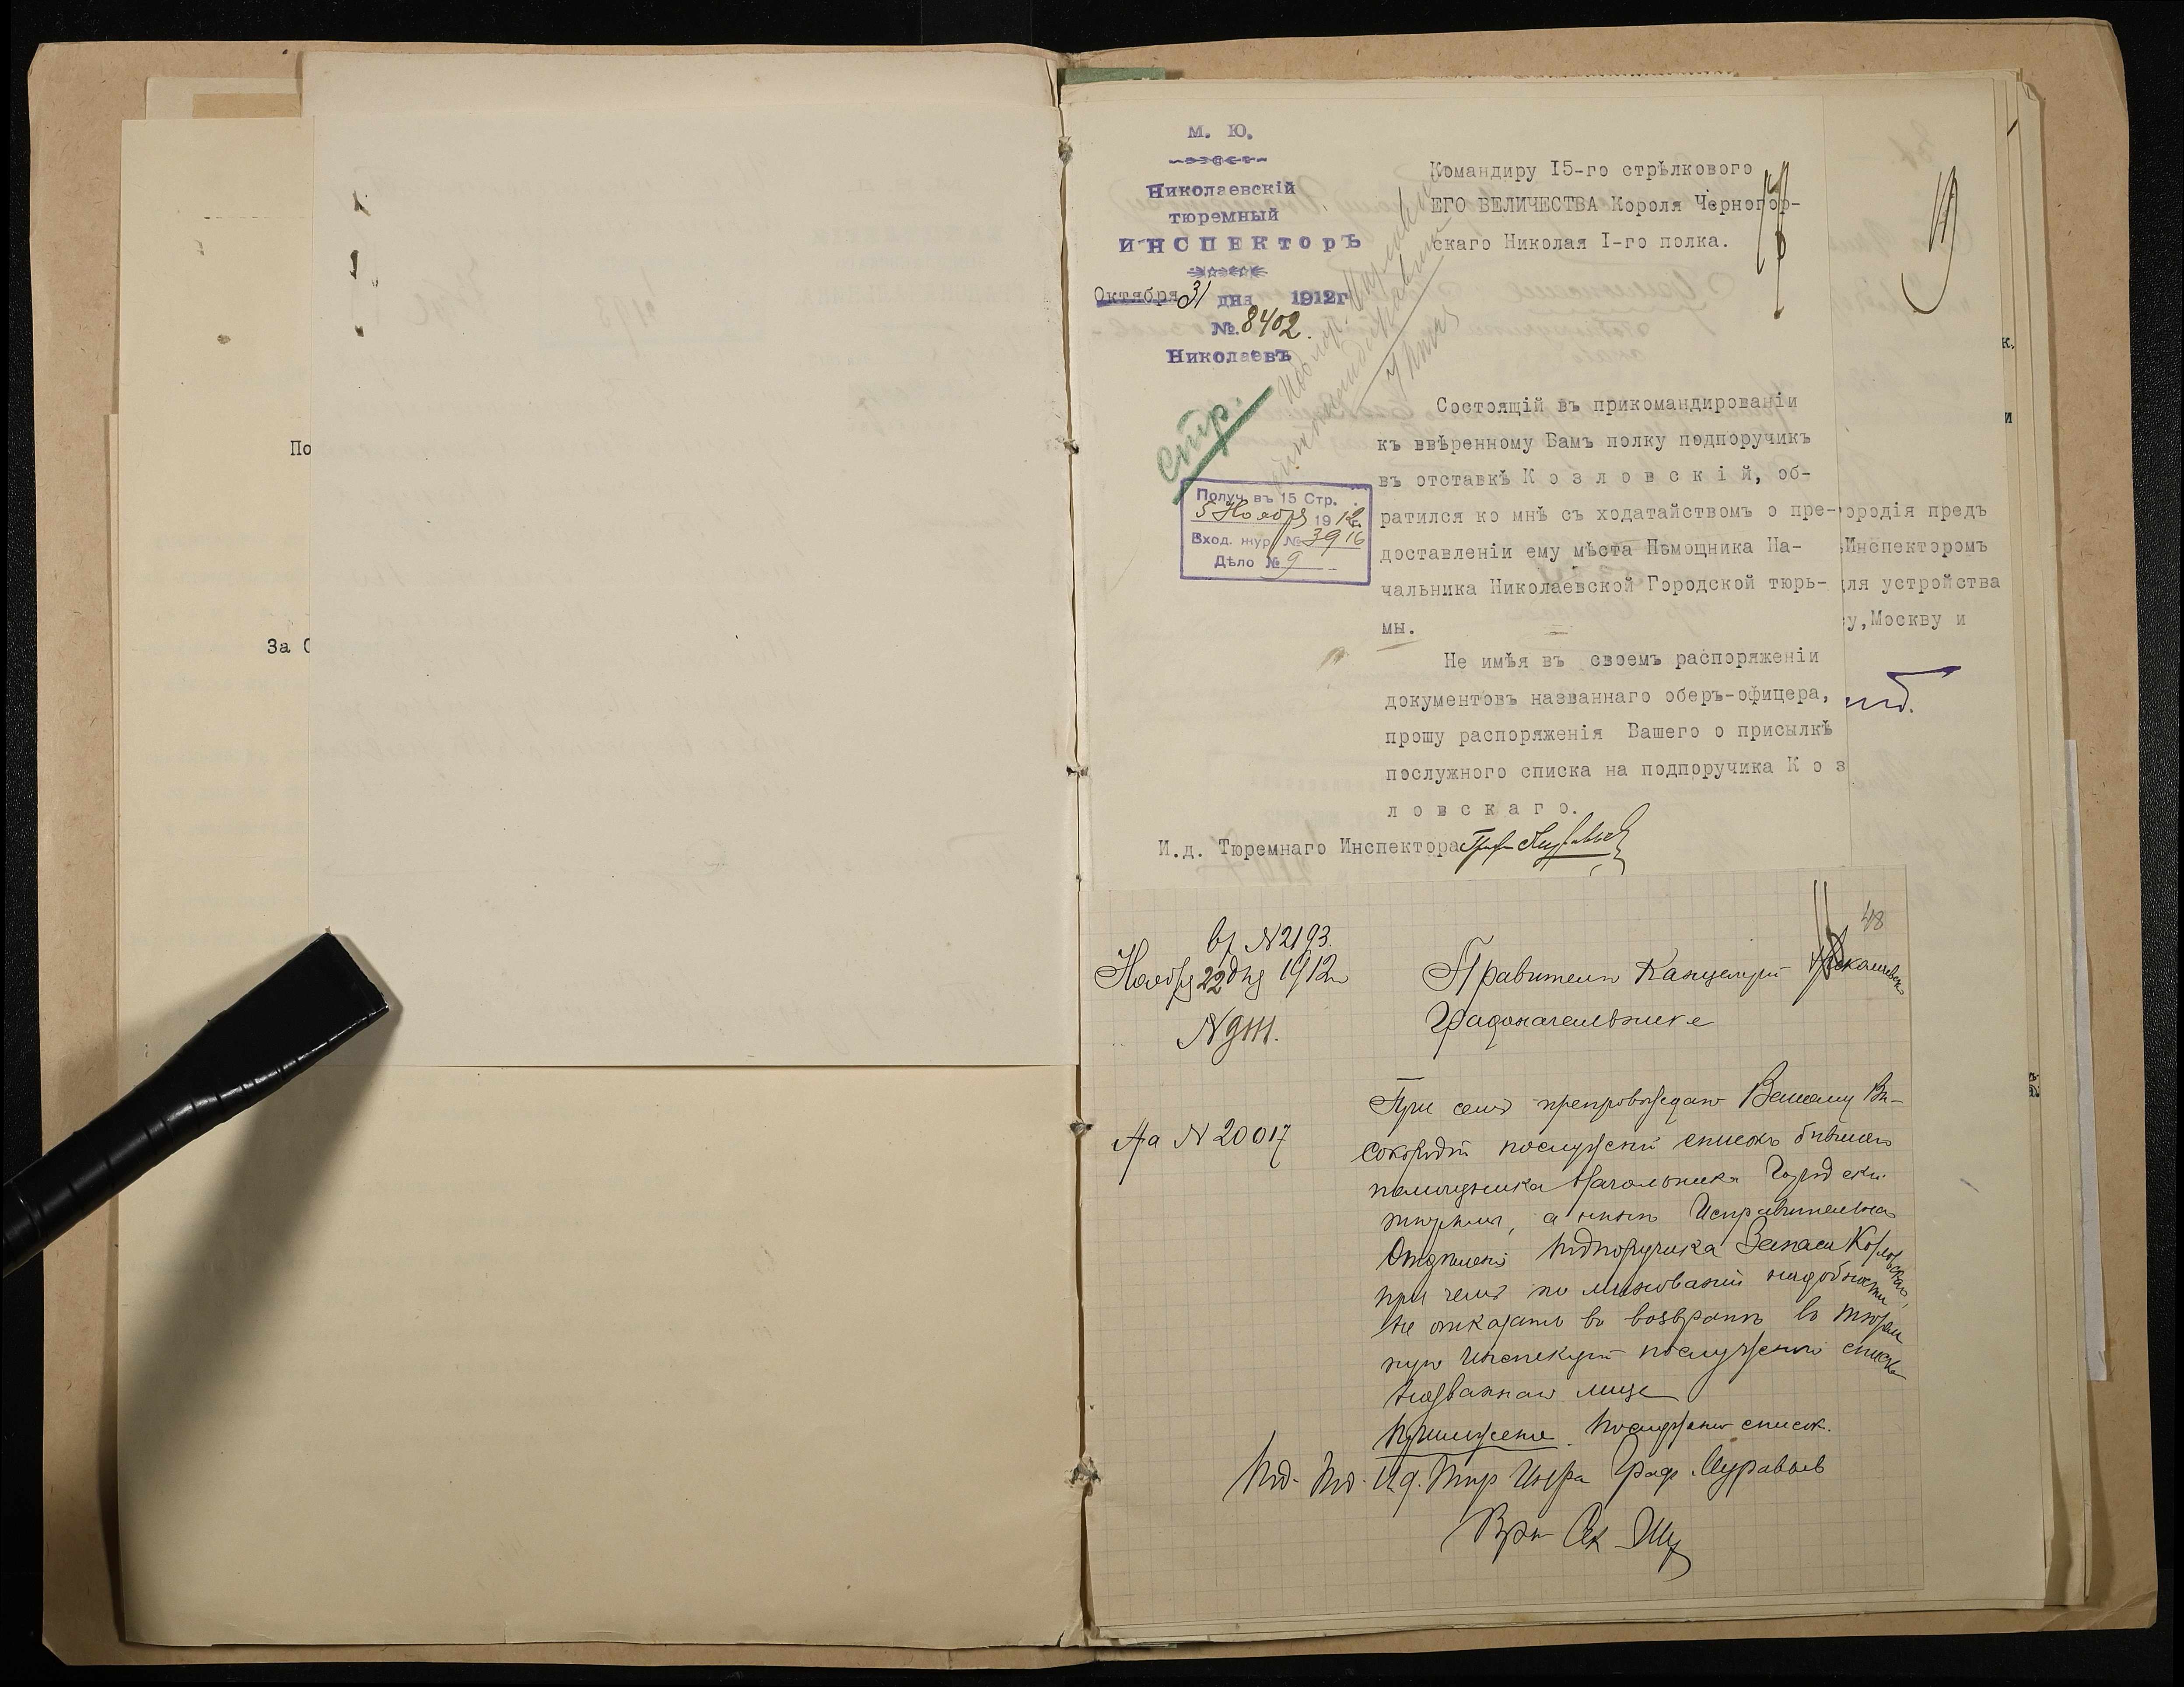 По
За С
М. Ю.
Николаевскій
тюремный
ИНСПЕКТОРЪ
Октября 31 дня 1912г
№. 8402.
Николаевъ
Командиру I5-го стрѣлковаго
ЕГО ВЕЛИЧЕСТВА Короля Черногор-
скаго Николая I-го полка.
стр.
Получ. въ 15 Стр.
5 Ноября 1912
Вход. жур. № 3916
Дѣло № 9
Состоящій въ прикомандированіи
къ ввѣренному Вамъ полку подпоручикъ
въ отставкѣ К о з л о в с к і й, об-
ратился ко мнѣ съ ходатайствомъ о пре-
доставленіи ему мѣста Помощника На-
чальника Николаевской Городской тюрь-
мы.
Не имѣя въ своемъ распоряженіи
документовъ названнаго оберъ-офицера,
прошу распоряженія Вашего о присылкѣ
послужного списка на подпоручика К о з
л о в с к а г о.
И.д. Тюремнаго Инспектора Графъ Муравьев
к.
и
ородія предъ
Инспекторомъ
для устройства
у, Москву и
48
№ 2193.
Ноября 22 дня 1912 г
№ 9111.
Правителю Канцеляріи Николаевск
Градоначальника
На № 20017
При семъ препровождаю Вашему Вы-
сокородію послужной списокъ бывшаго
помощника Начальника Городской
тюрьмы, а нынѣ Исправительнаго
Отдѣленія подпоручика Запаса Козловскаго,
при чемъ по минованіи надобности
не отказать въ возвратѣ въ тюрем
ную Инспекцію послужной списокъ
названнаго лица
Приложеніе. Послужной список.
И.д. Тюр Инсра Граф Муравьев